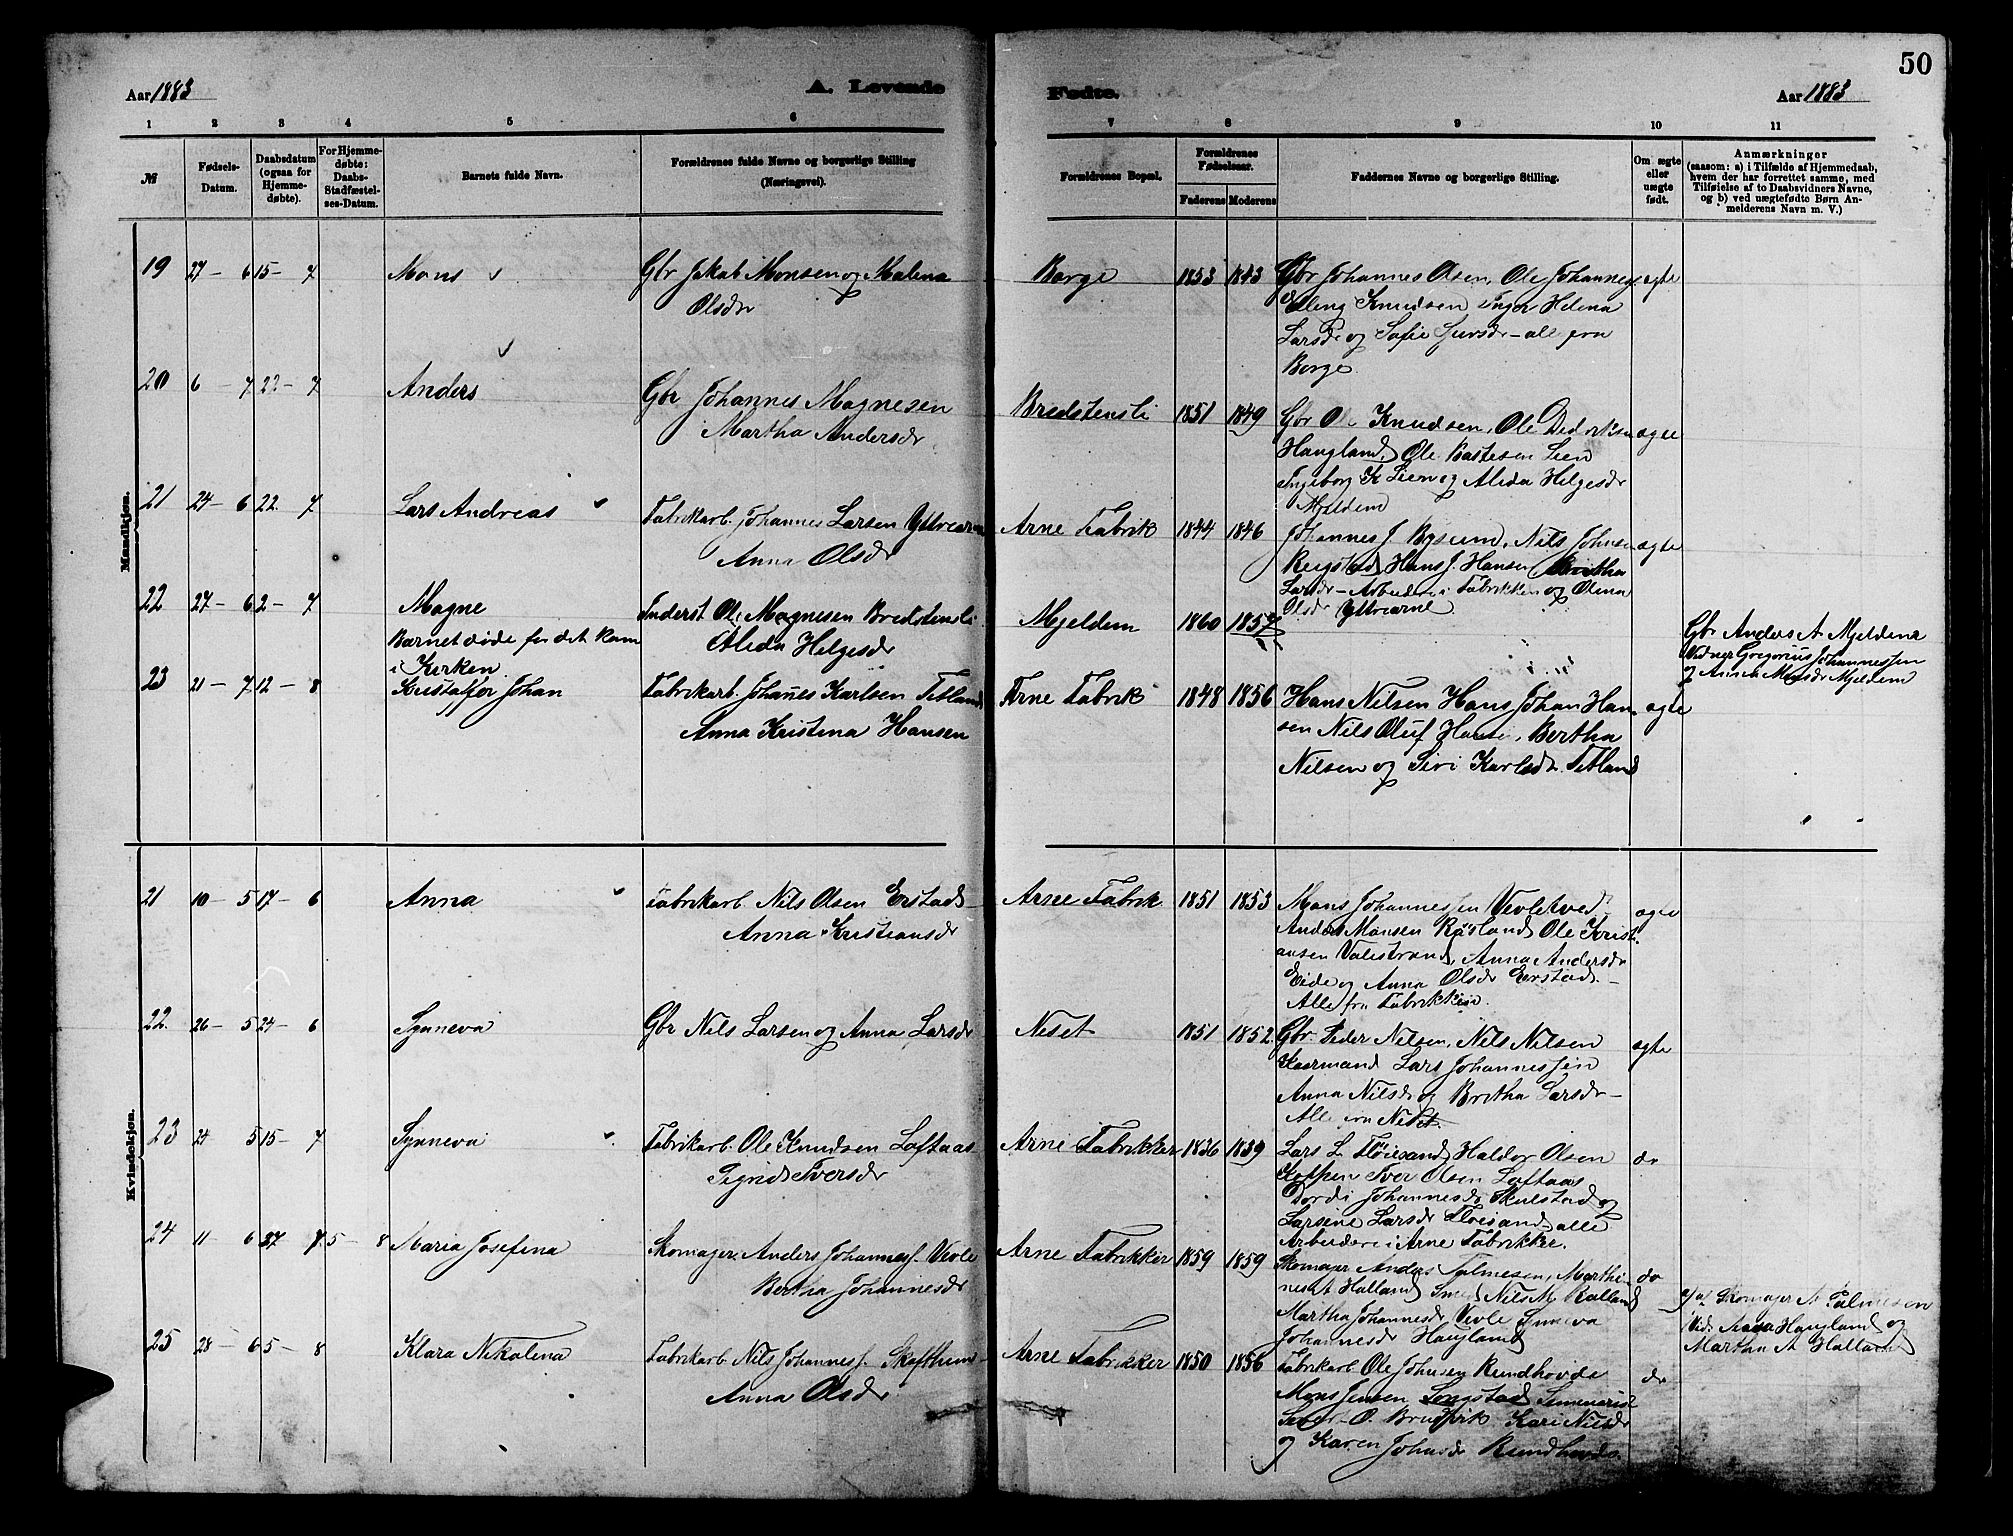 50
Aar 1883
A. Levende
Fødte.
Aar 1883
1 2 3 4 5 6 7 8 9 10 11
№
Fødsels-
Datum.
Daabsdatum
(ogsaa for
Hjemme-
døbte).
For Hjemme-
døbte:
Daabs-
Stadfæstel-
ses-Datum.
Barnets fulde Navn.
Forældrenes fulde Navne og borgerlige Stilling
(Næringsvei).
Forældrenes Bopæl.
Forældrenes
Fødselsaar.
Faderens Moderens
Faddernes Navne og borgerlige Stilling.
Om ægte
eller
uægte
født.
Anmærkninger
(saasom: a) i Tilfælde af Hjemmedaab,
hvem der har forrettet samme, med
Tilføielse af to Daabsvidners Navne,
og b) ved uægtefødte Børn An-
melderens Navn m. V.)
Mandkjøn.
19 27 - 6 15 - 7 Mons Gbr Jakob Monsen og Malena
Olsdr
Borge 1853 1843 Gbr Johannes Olsen, Ole Johannes. ægte
Knudsen Inger Helena
Larsdr og Sofie Sjursdr - alle fra
Borge
20 6 - 7 22 - 7 Anders Gbr Johannes Magnesen
Martha Andersdr
Bredstensli 1851 1849 Gbr Knudsen, Ole Dedriksen ægte
Haugland, Ole Bastesen Lien
Ingeborg K Lien og Alida Helgesdr
Mjeldem
21 24 - 6 22 7 Lars Andreas Fabrikarb. Johannes Larsen Yttrearne
Anna Olsdr
Arne Fabrik 1844 1846 Johannes J. Nils Johnsen ægte
Hans J. Hansen, Britha
Larsdr - Arbeidere i Fabrikken og Olina
Olsdr Yttrearne
22 27 - 6 2 - 7 Magne
Barnet døde før det kom
i Kirken
Ole Magnesen Bredstensli
Alida Helgesdr
Mjeldem 1860 1857
Gbr Anders A Mjeldem
Vidner Gregorius Johannessen
og Anna Mjeldem
23 21 - 7 12 - 8 Kristoffer Johan Fabrikarb. Johanes Karlsen Tetland
Anna Kristina Hansen
Arne Fabrik 1848 1856 Hans Nilsen Hans Johan Han- ægte
sen Nils Oluf Bertha
Nilsen og Siri Karlsdr Tetland
Kvindekjøn.
21 10 - 5 17 - 6 Anna Fabrikarb. Nils Olsen Erstad
Anna Kristiansdr
Arne Fabrik 1851 1853 Mons Johannessen Vevletved ægte
Anders Monsen Røsland Ole Kristi-
ansen Valestrand, Anna Andersdr
Eide og Anna Olsdr Erstad -
Alle fra Fabrikken.
22. 26 - 5 24 - 6 Synneva Gbr Nils Larsen og Anna Larsdr
Neset 1851 1852. Gbr. Peder Nilsen, Nils Nilsen ægte
Lars Johannessen
Anna Nilsdr og Britha Larsdr -
Alle fra Neset.
23 24 5 15 - 7 Synneva Fabrikarb. Ole Knudsen Loftaas
Sigrid Iversdr
Arne Fabrikker 1836 1839 Lars L. Fløisand, Haldor Olsen do
Iver Olsen Loftaas
Dordi Johannesdr Skulstad og
Larsine Larsdr Fløisand, alle
Arbeidere i Arne Fabrikker.
24 11 - 6 7 5 - 8 Maria Josefina Skomager. Anders Johanness. Vevle
Bertha Johannesdr
Arne Fabrikker 1859 1859 Skomager Anders Palmesen, Marthi- do
nes A Halland Smed Nils M Rolland
Martha Johannesdr Vevle Synneva
Johannesdr Haugland
Skomager A Palmesen
Vid. Haugland og
Martha A Halland
25 28 - 6 5 - 8 Klara Nikolina Fabrikarb. Nils Johanness. Skaftheim
Anna Olsdr
Arne Fabrikker 1850 1856 Fabrikarb Ole Johnsen Rundhovde do
Mons Jensen Songstad Seminarist
Sever O. Brudvik Kari Nilsdr
og Karen Johnsdr Rundhovde.